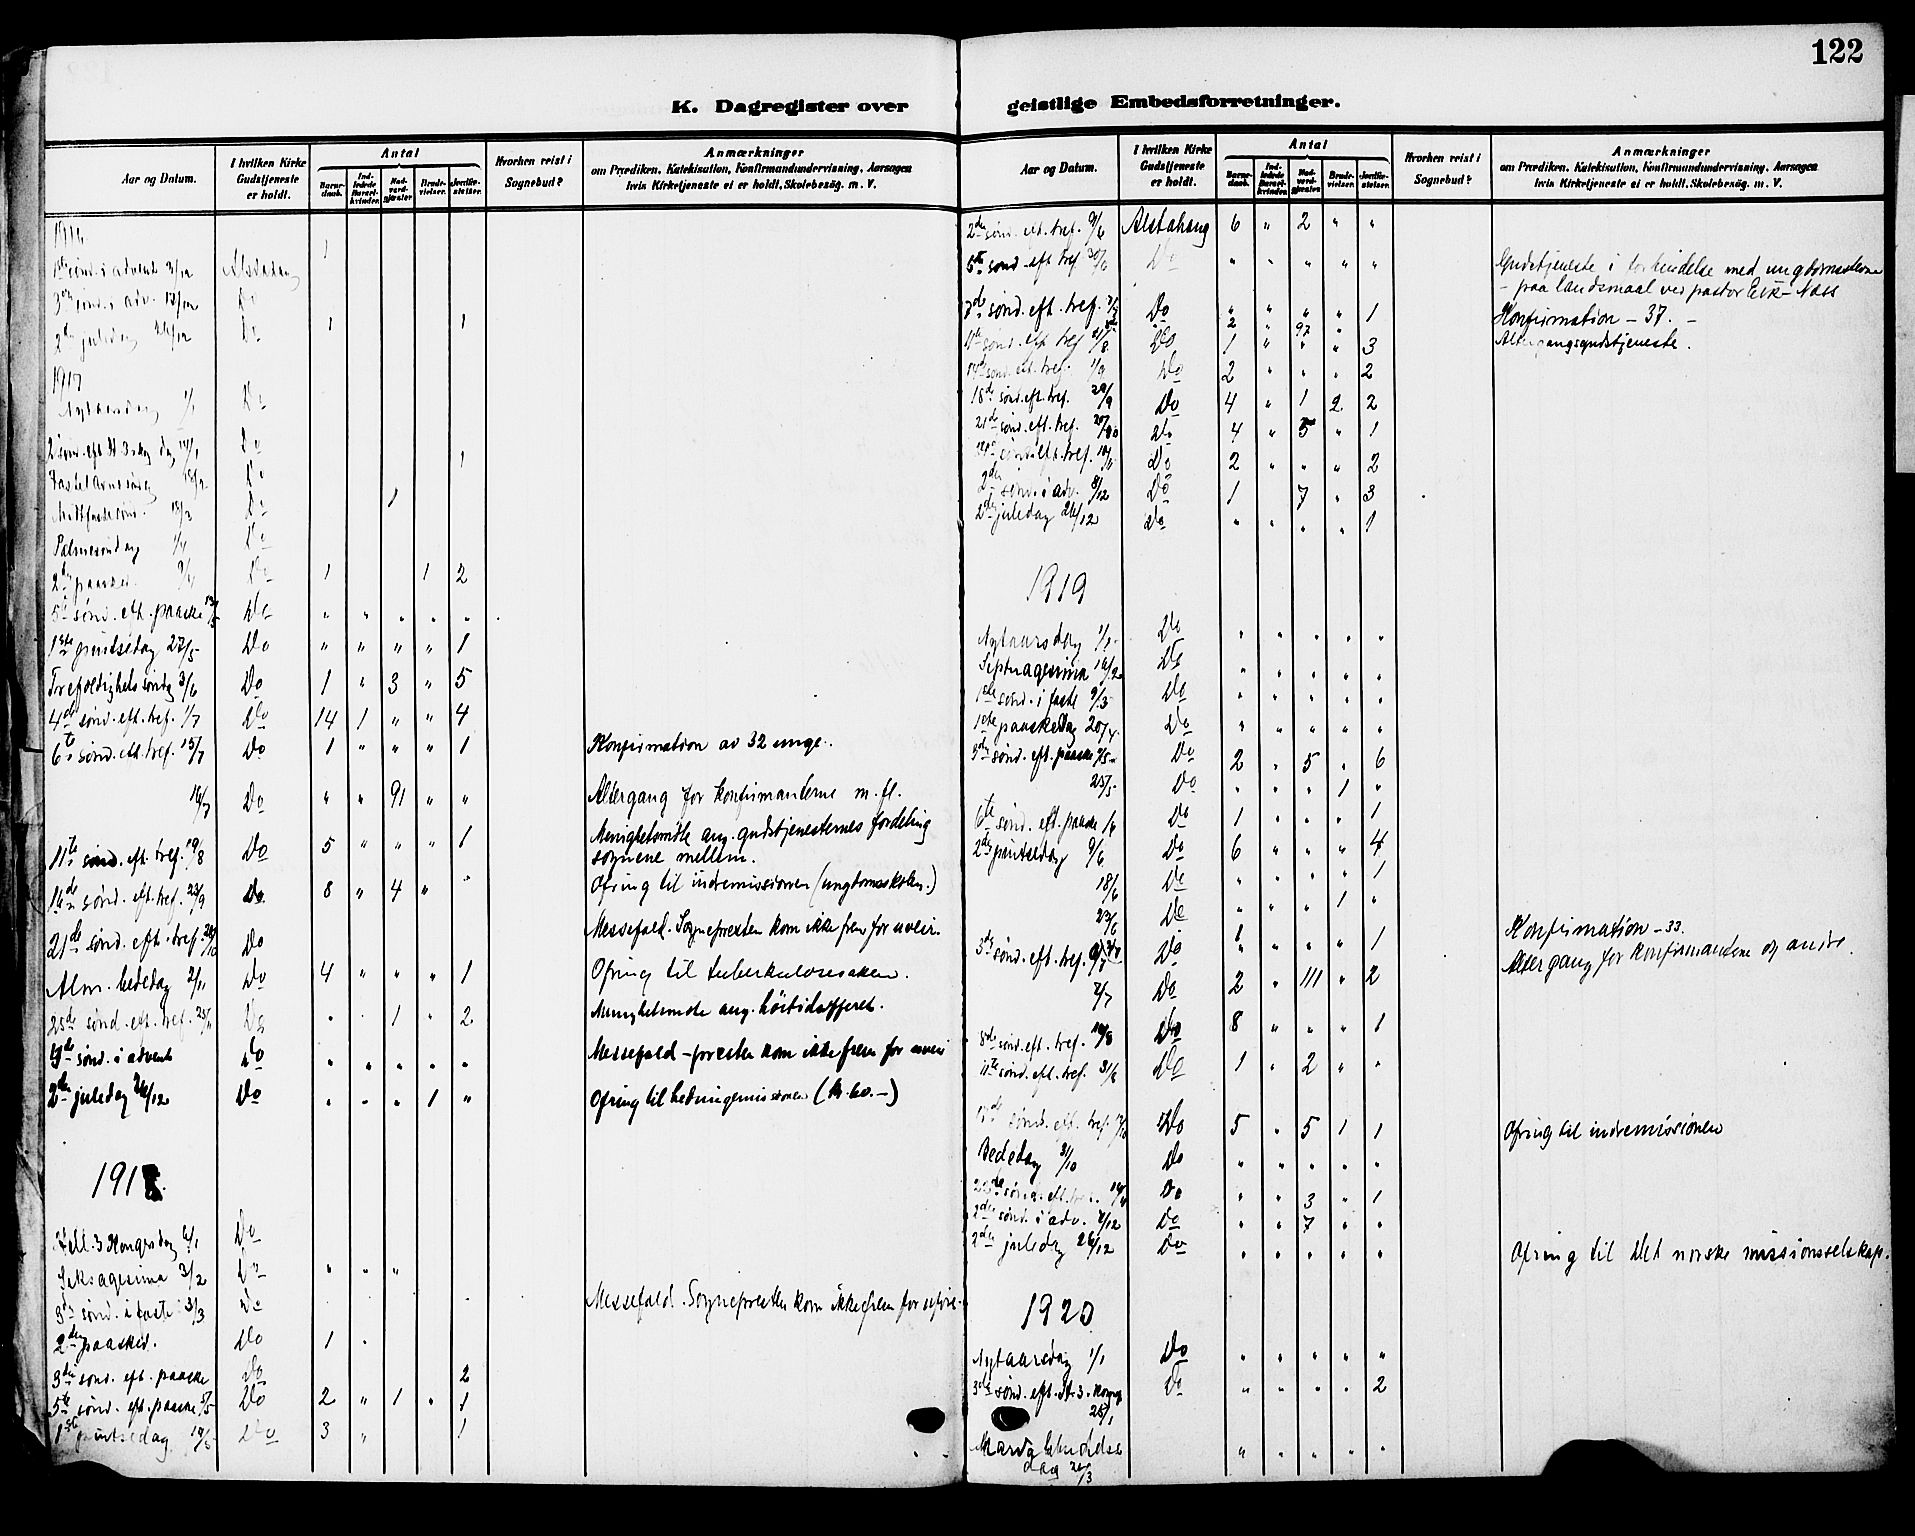 122
K. Dagregister over geistlige Embedsforretninger.
Aar og Datum. I hvilken Kirke Gudstjeneste er holdt. Antal Barnedaab. Indledede Barselkvinder. Nadverdgjæster. Brudevielser. Jordfæstelser. Hvorhen reist i Sognebud? Anmærkninger om Prædiken, Katekisation, Konfirmandundervisning, Aarsagen hvis Kirketjeneste ei er holdt, Skolebesøg. m. V.
1916
1ste sønd. i advent 3/12 Alstahaug 1
3die sønd. i adv. 17/12 Do
2den juledag 26/12 Do 1 1
1917
Nytaarsdag 1/1 Do
2 sønd. eft. H. 3 kg. dag 14/1 Do
Fastelavnssøndag 18/2 Do 1
Midtfastesønd. 18/3 Do 1
Palmesøndag 1/4 Do
2den paasked. 9/4 Do 1 1 2
5te sønd. eft. paaske 13/5 Do " " " " "
1ste pintsedag 27/5 Do " " " " 1
Trefoldighetssøndag 3/6 Do 1 " 3 " 5
4de sønd. eft. tref. 1/7 Do 14 1 " " 4
6te sønd. eft. tref. 15/7 Do 1 " " " 1 Konfirmation av 32 unge.
16/7 Do " " 91 " " Altergang for konfirmanterne m. fl.
11te sønd. eft. tref. 19/8 Do 5 " " " 1 Menighetsmøte ang. gudstjenesternes fordeling
sognene mellem.
16de sønd. eft. tref. 23/9 Do 8 " 4 " " Ofring til indremissionen (ungdomsskolen.)
21de sønd. eft. tref. 28/10 Do Messefald. Sogneprested kom ikke frem for uveir.
Alm. bededag 2/11 Do 4 " " " 1 Ofring til tuberkulosesaken.
25de sønd. eft. tref. 25/11 Do " " 1 " 2 Menighetsmøte ang. høitidsofferet.
4de sønd. i advent Do " " " " " Messefald - presten kom ikke frem for uveir
2den juledag 26/12 Do " " " 1 " Ofring til hedningemissionen (kr. 60.-)
1918.
Hell. 3 Kongersdag 6/1 Do
Seksagesima 3/2 Do " " "
3die sønd. i faste 3/3 Do Messefald. Sognepresten kom ikke frem for uføre.
2den paasked. Do 1 "
3die sønd. eft. paaske Do 2
5te sønd. eft. paaske 5/5 Do 2 " 1 " 1
1ste pintsedag 19/5 Do 3 " 1
Aar og Datum. I hvilken Kirke Gudstjeneste er holdt. Antal Barnedaab. Indledede Barselkvinder. Nadverdgjæster. Brudevielser. Jordfæstelser. Hvorhen reist i Sognebud? Anmærkninger om Prædiken, Katekisation, Konfirmandundervisning, Aarsagen hvis Kirketjeneste ei er holdt, Skolebesøg. m. V.
2den sønd. eft. tref. 9/6 Alstahaug 6 " 2 " "
5te sønd. eft. tref. 30/6 Do " " " " " Gudstjeneste i forbindelse med ungdomsstevne
- paa landsmaal ved pastor Eik-Næss
Do " " " " 1 Konfirmation - 37. -
Do 2 " 97 " Altergangsgudstjeneste.
sønd. eft. tref. /8 1 " " " 3
14de sønd. eft. tref. 1/9 Do 2 " " " 2
18de sønd. eft. tref. 29/9 Do 4 " 1 2 2
21de sønd. eft. tref. 20/10 Do 4 " 5 " 1
sønd. eft. tref. 10/11 Do 2 " " " 2
2den sønd. i adv. 8/12 Do 1 7 " 3
2den juledag 26/12 Do " " " " 1
1919
Nytaarsdag 1/1 Do " " " " "
Septuagesima 16/2 Do " " " " "
1ste sønd. i faste 9/3 Do " " " " "
1ste paaskedag 20/4 Do " " " " "
sønd. eft. paaske /5 Do 2 " 5 " 6
25/5 Do " " " 1 "
6te sønd. eft. paaske 1/6 Do 1 " " " 1
2den pintsedag 9/6 Do 6 " " " 4
18/6 Do " " " " 1
23/6 Do " " " 1 "
3die sønd. eft. tref. Do 1 " " " 1 Konfirmation - 33.
/7 Do 2 " 111 " 2 Altergang for konfirmanterne og andre.
8de sønd. eft. tref. 10/8 Do 8 " " " 1
11te sønd. eft. tref. 31/8 Do 1 " 2 " "
sønd. eft. tref. Do 5 " 5 1 1 Ofring til indremissionen
Bededag 31/10 Do " " " " "
sønd. eft. tref. Do " " 3 " 1
2den sønd. i adv. 7/12 Do " " 7 " "
2den juledag 26/12 Do " " " " " Ofring til Det norske missionsselskap.
1920
Nytaarsdag 1/1 Do " " " " "
3die sønd. eft. H. 3. Kongsd. Do " " " " 2
25/1
Maria bebudelses " " " " "
dag /3